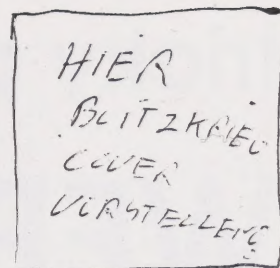 HIER
BLITZKRIEG
COVER
VORSTELLEN!